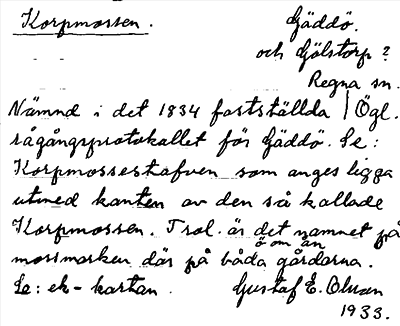 Korpmossen.
Gäddö.
och Gölstorp?
Regna sn.
Nämnd i det 1834 fastställda / Ögl.
rågångsprotokollet för Gäddö. Se:
Korpmossestafven som anges ligga
utmed kanten av den så kallade
Korpmossen. Trol. är det namnet på
mossmarken där på båda gårdarna.
Se: ek-kartan. Gustaf E. Olsson
1933.